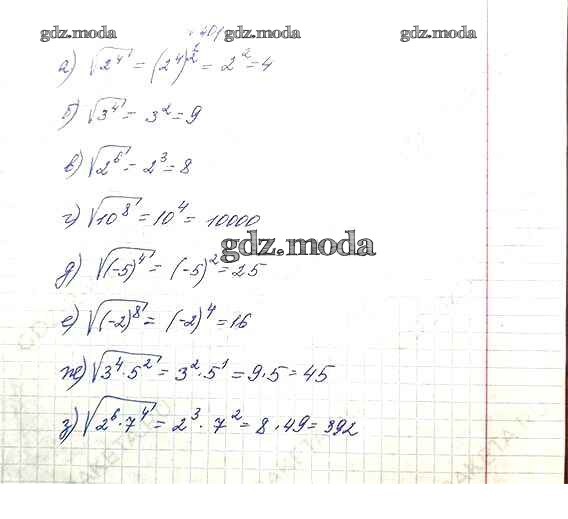 gdz.moda gdz.moda gdz.moda
а) √2⁴ = (2⁴)^½ = 2² = 4
б) √3⁴ = 3² = 9
в) √2⁶ = 2³ = 8
г) √10⁸ = 10⁴ = 10000
gdz.moda
д) √(-5)⁴ = (-5)² = 25
е) √(-2)⁸ = (-2)⁴ = 16
ж) √3⁴·5² = 3²·5¹ = 9·5 = 45
з) √2⁶·7⁴ = 2³·7² = 8·49 = 392